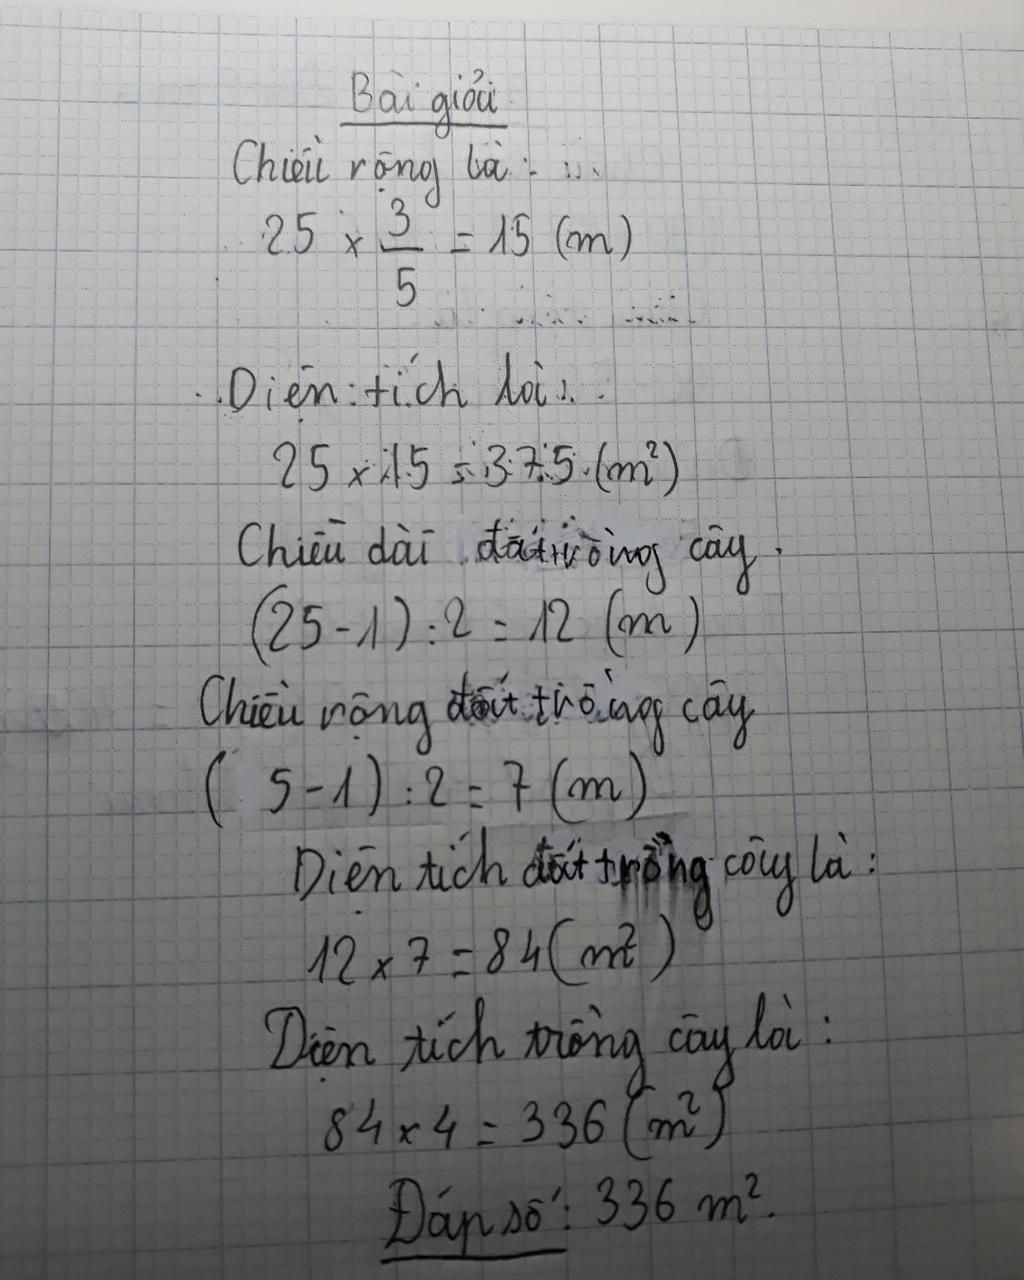 Bài giải
Chiều rộng là:
25 × 3/5 = 15 (m)
Diện tích là:
25 × 15 = 375 (m²)
Chiều dài đất trồng cây
(25 - 1) : 2 = 12 (m)
Chiều rộng đất trồng cây
( 5 - 1) : 2 = 7 (m)
Diện tích đất trồng cây là:
12 × 7 = 84 (m²)
Diện tích trồng cây là:
84 × 4 = 336 (m²)
Đáp số: 336 m².